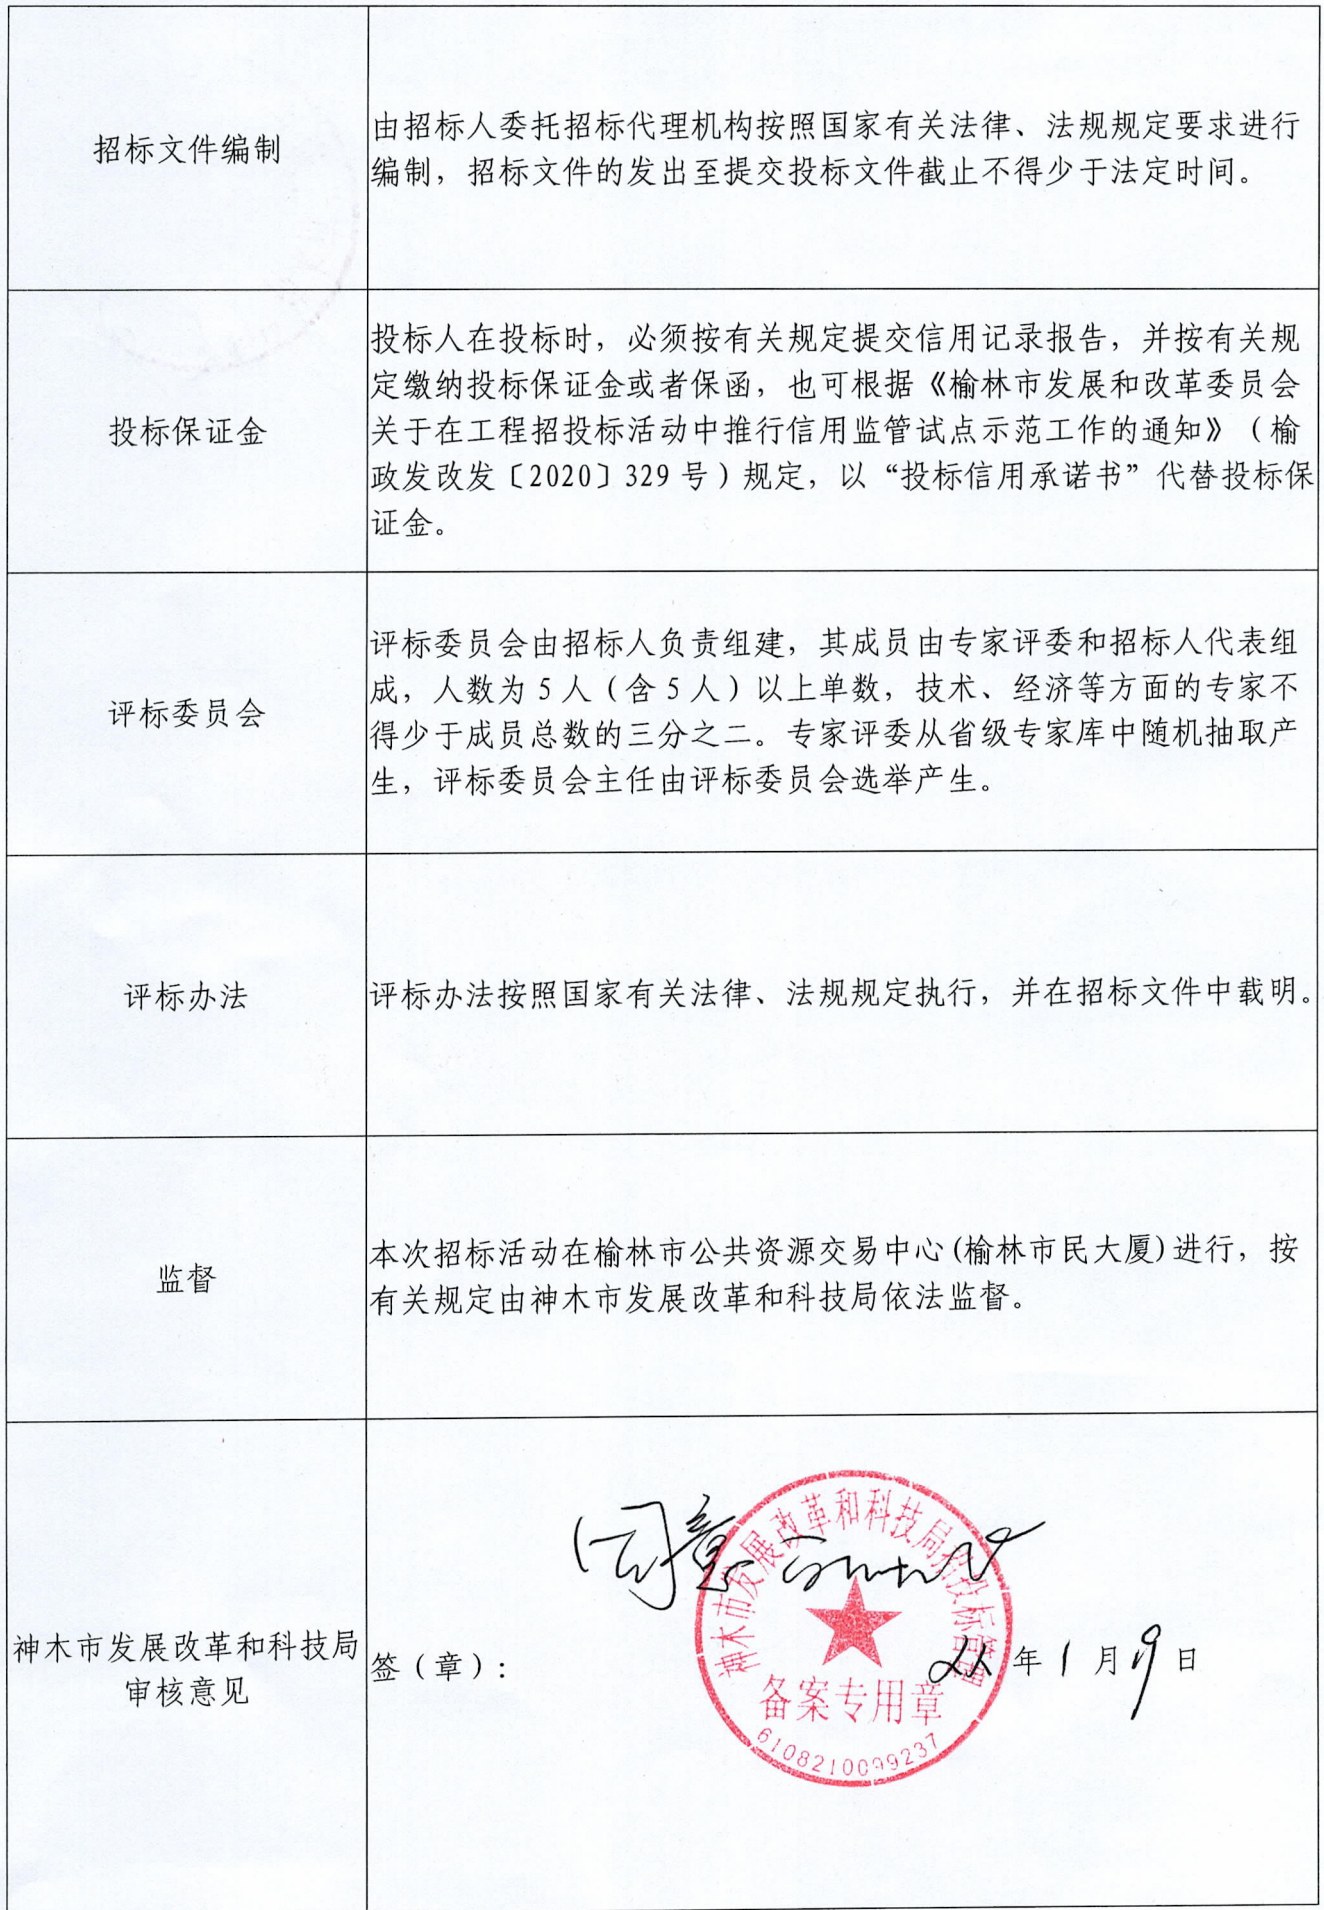 招标文件编制
由招标人委托招标代理机构按照国家有关法律、法规规定要求进行
编制，招标文件的发出至提交投标文件截止不得少于法定时间。
投标保证金
投标人在投标时，必须按有关规定提交信用记录报告，并按有关规
定缴纳投标保证金或者保函，也可根据《榆林市发展和改革委员会
关于在工程招投标活动中推行信用监管试点示范工作的通知》（榆
政发改发〔2020〕329号）规定，以“投标信用承诺书”代替投标保
证金。
评标委员会
评标委员会由招标人负责组建，其成员由专家评委和招标人代表组
成，人数为5人（含5人）以上单数，技术、经济等方面的专家不
得少于成员总数的三分之二。专家评委从省级专家库中随机抽取产
生，评标委员会主任由评标委员会选举产生。
评标办法
评标办法按照国家有关法律、法规规定执行，并在招标文件中载明。
监督
本次招标活动在榆林市公共资源交易中心(榆林市民大厦)进行，按
有关规定由神木市发展改革和科技局依法监督。
神木市发展改革和科技局
审核意见
同意
神木市发展改革和科技局招投标管理
备案专用章
6108210099237
签（章）：
年1月9日